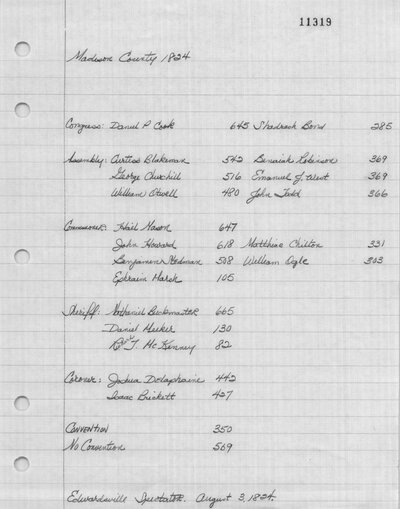 11319
Madison County 1824
Congress: Daniel P Cook 645 Shadrach Bond 285
Assembly: Curtiss Blakeman 542 Benaiah Robinson 369
George Churchill 516 Emanuel J. West 369
William Otwell 480 John Todd 366
Commissioner: Hail Mason 647
John Howard 618 Matthias Chilton 331
Benjamin Stedman 508 William Ogle 303
Ephraim Marsh 105
Sheriff: Nathaniel Buckmaster 665
Daniel Meeker 130
T. McKenney 82
Coroner: Joshua Delaphaine 442
Isaac Prickett 427
Convention 350
No Convention 569
Edwardsville Spectator. August 3, 1824.